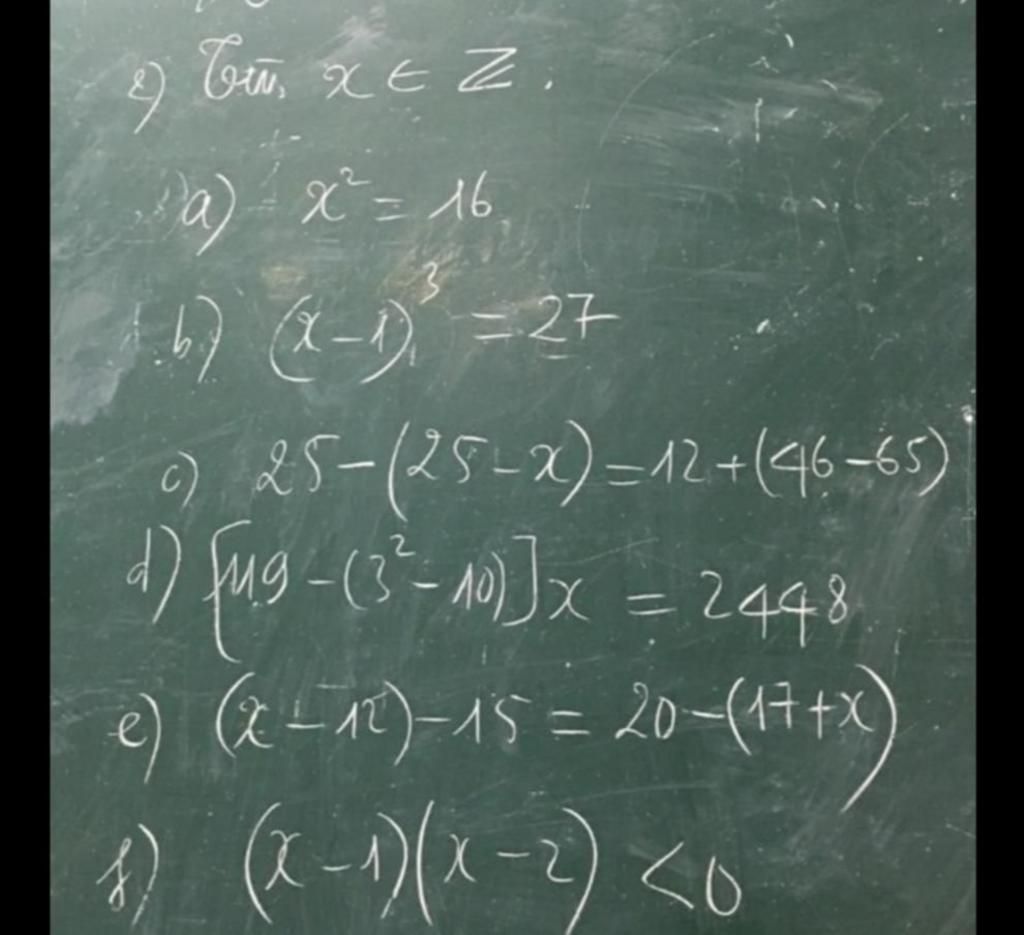 2) Tìm x ∈ Z.
a) x² = 16
b) (x-1)³ = 27
c) 25-(25-x)=12+(46-65)
d) [119-(3²-10)]x = 2448
e) (x-12)-15 = 20-(17+x)
f) (x-1)(x-2) <0